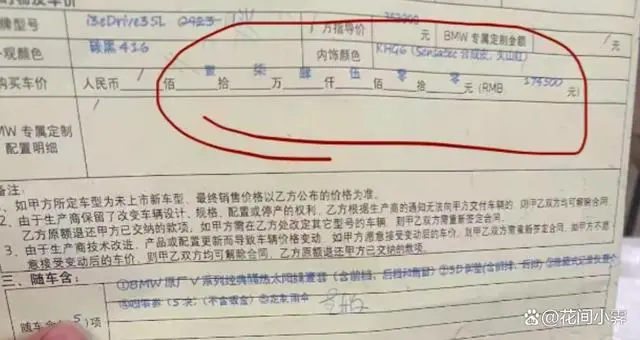 车价
牌型号 i3eDrive35L 厂方指导价 353900 元 BMW 专属定制金额 元
观颜色 碳黑416 内饰颜色 KHG6 (Sensatec
购买车价 人民币 / 佰 壹 拾 柒 万 肆 仟 伍 佰 零 拾 零 元 (RMB 174500 元)
MW 专属定制
配置明细 /
备注:
1、如甲方所定车型为未上市新车型,最终销售价格以乙方公布的价格为准。
2、由于生产商保留了改变车辆设计、规格、配置或停产的权利,乙方根据生产商的通知无法向甲方交付车辆的,则甲乙双方均可解除合同,
乙方原额退还甲方已交纳的款项。如甲方需在乙方处改定其它型号的车辆,则甲乙双方需重新签定合同。
3、由于生产商技术改进、产品或配置更新而导致车辆价格变动,如甲方愿意接受变动后的车价,则甲乙双方需重新签定合同,如甲方不愿
意接受变动后的车价,则甲乙双方均可解除合同,乙方原额退还甲方已交纳的款项。
三、随车含:
①BMW原厂V系列经典隔热太阳膜
随车含( 5 )项 (5次)(不含钣金)
百家号@花间小霁